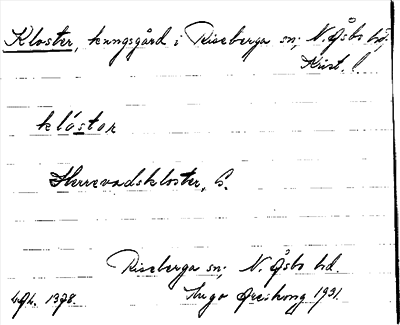 Kloster, kungsgård i Riseberga sn; N. Åsbo hd,
Krist. l.
klóstor
Herrevadskloster, G.
Riseberga sn; N. Åsbo hd.
Hugo Areskoug 1931.